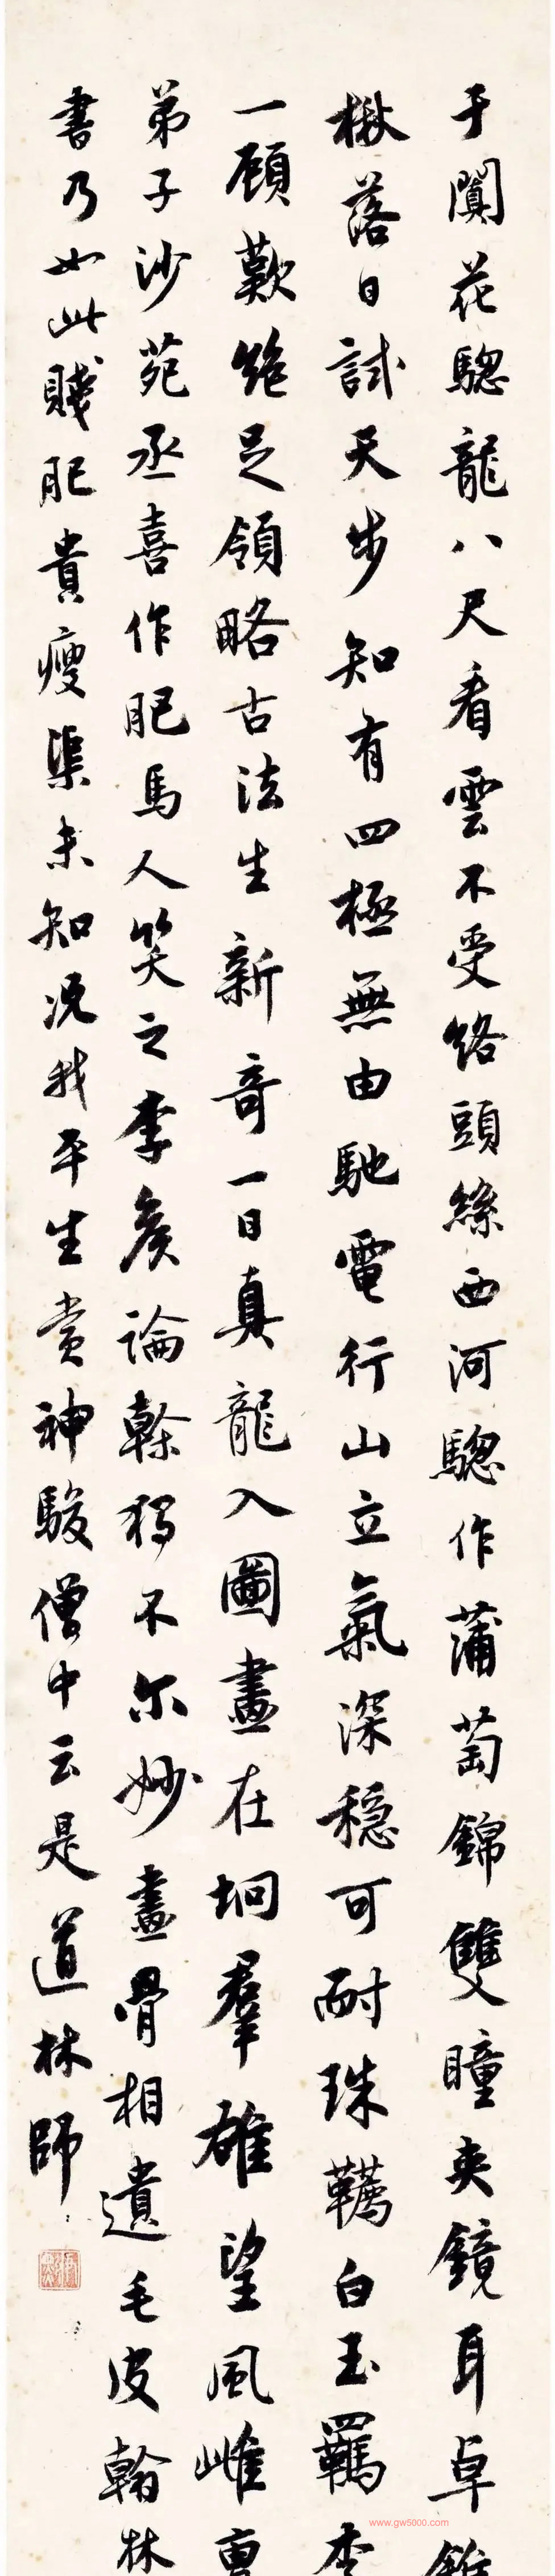 于闐花驄龍八尺看雲不受絡頭絲西河驄作蒲萄錦雙瞳夾鏡耳卓
楸落日試天步知有四極無由馳電行山立氣深穩可耐珠韉白玉羈李
一顧歎絕足領略古法生新奇一日真龍入圖畫在坰羣雄望風雌曹
弟子沙苑丞喜作肥馬人笑之李侯論幹獨不尔妙畫骨相遺毛皮翰林
書乃如此賤肥貴瘦渠未知況我平生賞神駿僧中云是道林師
www.gw5000.com